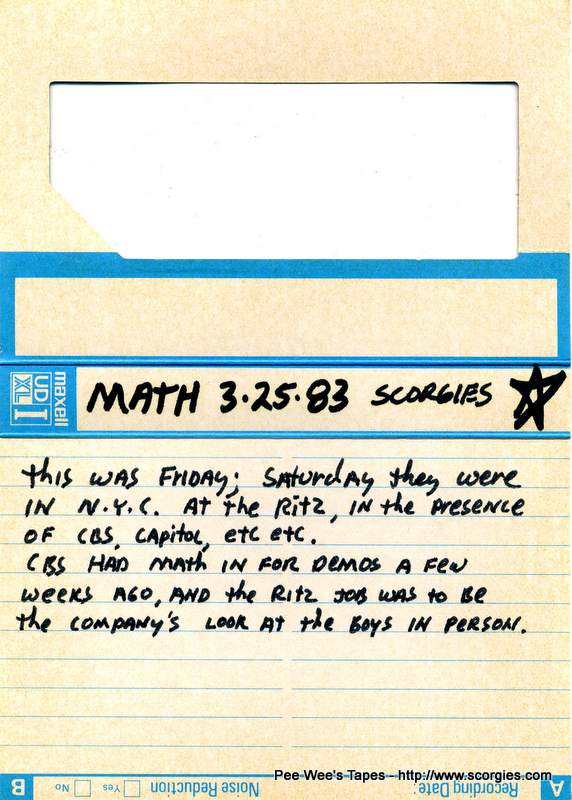 maxell
UD
XL I
MATH 3.25.83 SCORGIES
this was FRIDAY; Saturday they were
IN N.Y.C. At the Ritz, IN the presence
OF CBS, CAPitol, etc etc.
CBS HAD MAth IN FOR DEMOS A FEW
WEEKS AGO, AND the RItz JOB WAS to BE
the COMPANY'S LOOK At the BOYS IN PERSON.
Pee Wee's Tapes - http://www.scorgies.com
A Recording Date: Noise Reduction Yes No B